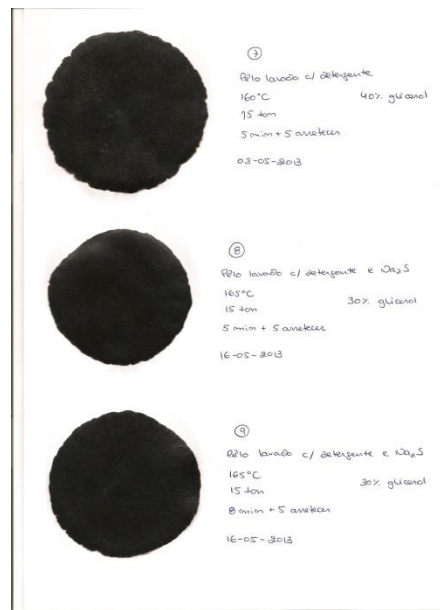 7
Pêlo lavado c/ detergente
160°C 40% glicerol
15 ton
5 min + 5 arrefecer
03-05-2013
8
Pêlo lavado c/ detergente e Na2S
165°C
15 ton 30% glicerol
5 min + 5 arrefecer
16-05-2013
9
Pêlo lavado c/ detergente e Na2S
165°C
15 ton 30% glicerol
8 min + 5 arrefecer
16-05-2013